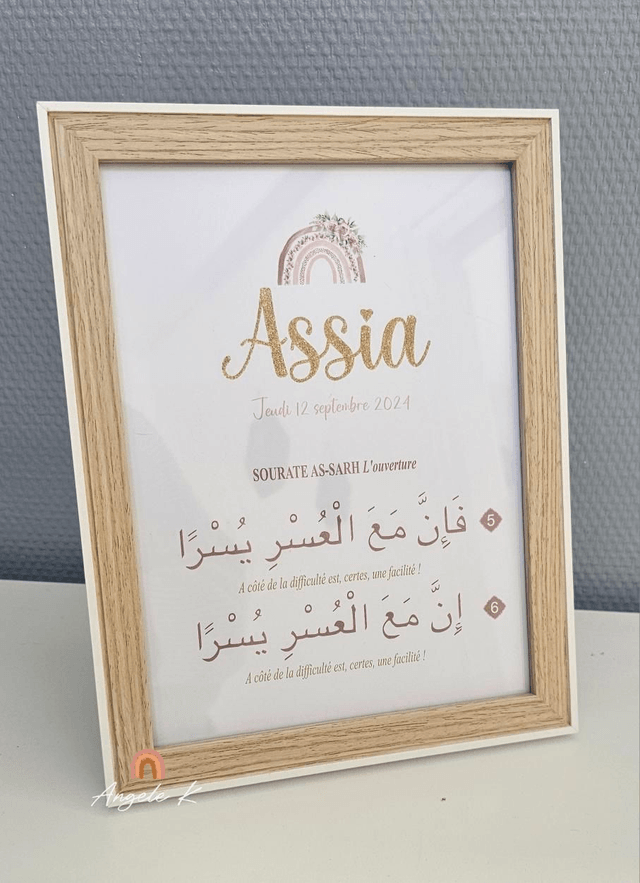 Assia
Jeudi 12 septembre 2024
SOURATE AS-SARH L'ouverture
فَإِنَّ مَعَ الْعُسْرِ يُسْرًا 5
A côté de la difficulté est, certes, une facilité !
إِنَّ مَعَ الْعُسْرِ يُسْرًا 6
A côté de la difficulté est, certes, une facilité !
Angele K